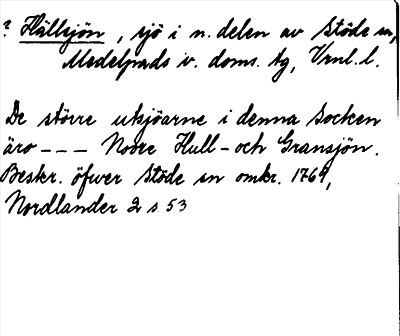 ? Hällsjön, sjö i n. delen av Stöde sn,
Medelpads v. doms. tg, Vrnl. l.
De större utsjöarne i denna Socken
äro --- Norre Hull- och Gransjön.
Beskr. öfwer Stöde sn omkr. 1769,
Nordlander 2 s 53